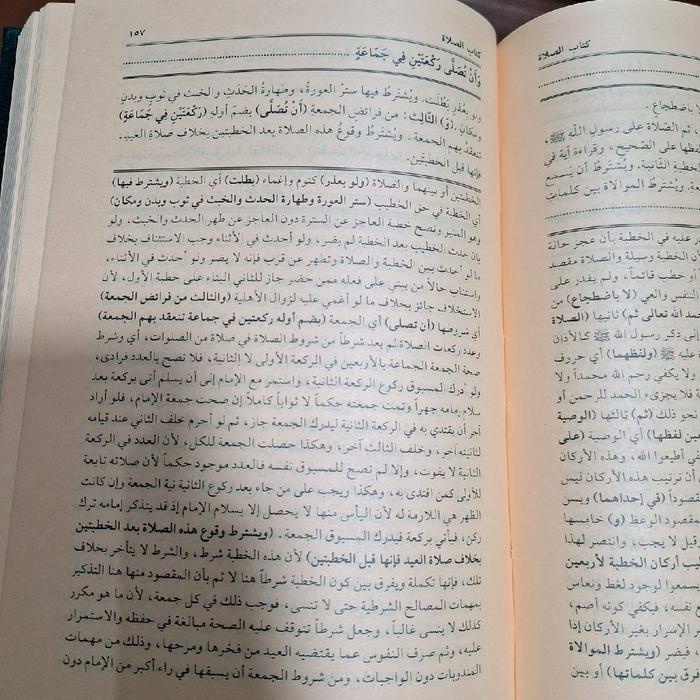 كتاب الصلاة ١٥٧
وَأَنْ تُصَلَّى رَكْعَتَيْنِ فِي جَمَاعَةٍ
ولو بعُذرٍ بَطَلَت. ويُشْتَرطُ فيها سترُ العورةِ، وطهارةُ الحَدَثِ والخبثِ في ثوبٍ وبدنٍ
ومكانٍ. (وَ) الثَّالِث: من فرائضِ الجمعةِ (أَنْ تُصَلَّى) بضم أولهِ (رَكْعَتَيْنِ فِي جَمَاعَةٍ)
تنعقدُ بهم الجمعة. ويُشترَطُ وقوعُ هذه الصلاة بعد الخطبتين بخلافِ صلاةِ العيدِ،
فإنها قبلَ الخطبتين.
الخطبتين أو بينهما والصلاة (ولو بعذر) كنوم وإغماء (بطلت) أي الخطبة (ويشترط فيها)
أي الخطبة في حق الخطيب (ستر العورة وطهارة الحدث والخبث في ثوب وبدن ومكان)
وهو المنبر وتصح خطبة العاجز عن السترة دون العاجز عن طهر الحدث والخبث، ولو
بان حدث الخطيب بعد الخطبة لم يضر، ولو أحدث في الأثناء وجب الاستئناف بخلاف
ما لو أحدث بين الخطبة والصلاة وتطهر عن قرب فإنه لا يضر ولو أحدث في الأثناء،
واستناب حالاً من يبني على فعله ممن حضر جاز للثاني البناء على خطبة الأول، لأن
الاستخلاف جائز بخلاف ما لو أغمي عليه لزوال الأهلية (والثالث من فرائض الجمعة)
أي شروطها (أن تصلى) أي الجمعة (بضم أوله ركعتين في جماعة تنعقد بهم الجمعة)
وعدد ركعات الصلاة لم يعد شرطاً من شروط الصلاة في صلاة من الصلوات، أي وشرط
صحة الجمعة الجماعة بالأربعين في الركعة الأولى لا الثانية، فلا تصح بالعدد فرادى،
ولو أدرك المسبوق ركوع الركعة الثانية، واستمر مع الإمام إلى أن يسلم أتى بركعة بعد
سلام إمامه جهراً وتمت جمعته حكماً لا ثواباً كاملاً إن صحت جمعة الإمام، فلو أراد
آخر أن يقتدي به في الركعة الثانية ليدرك الجمعة جاز، ثم لو أحرم خلف الثاني عند قيامه
لثانيته آخر، وخلف الثالث آخر، وهكذا حصلت الجمعة للكل، لأن العدد في الركعة
الثانية لا يفوت، وإلا لم تصح للمسبوق نفسه فالعدد موجود حكماً لأن صلاته تابعة
للأولى كمن اقتدى به، وهكذا ويجب على من جاء بعد ركوع الثانية نية الجمعة وإن كانت
الظهر هي اللازمة له لأن اليأس منها لا يحصل إلا بسلام الإمام إذ قد يتذكر إمامه ترك
ركن، فيأتي بركعة فيدرك المسبوق الجمعة. (ويشترط وقوع هذه الصلاة بعد الخطبتين
بخلاف صلاة العيد فإنها قبل الخطبتين) لأن هذه الخطبة شرط، والشرط لا يتأخر بخلاف
تلك، فإنها تكملة ويفرق بين كون الخطبة شرطاً هنا لا ثم بأن المقصود منها هنا التذكير
بمهمات المصالح الشرطية حتى لا تنسى، فوجب ذلك في كل جمعة، لأن ما هو مكرر
كذلك لا ينسى غالباً، وجعل شرطاً تتوقف عليه الصحة مبالغة في حفظه والاستمرار
عليه، وثم صرف النفوس عما يقتضيه العيد من فخرها ومرحها، وذلك من مهمات
المندوبات دون الواجبات، ومن شروط الجمعة أن يسبقها في راء أكبر من الإمام دون
كتاب الصلاة
لا باضطجاع.
ثم الصلاة على رسول الله ﷺ،
فظها على الصحيح، وقراءة آية في
الخطبة الثانية. ويُشترطُ أن يسمع
ويشترط الموالاة بين كلمات
عليه في الخطبة بأن عجز حالة
أن الخطبة وسيلة والصلاة مقصد
خطب قائماً. ولم يقدر على
النفس والعي (لا باضطجاع) من
حمد الله تعالى ثم) ثانيها (الصلاة
ذكر رسول الله ﷺ كالأذان
عليه ﷺ (ولفظهما) أي حروف
ولا يكفي رحم الله محمداً ولا
فلا يجزىء الحمد للرحمن أو
نحو ذلك (ثم) ثالثها (الوصية
لفظها) أي الوصية (على
في أطيعوا الله، وهذه الأركان
أن ترتيب هذه الأركان ليس
(في إحداهما) ويسن
مقصود الوعظ (و) خامسها
وقبل لا يجب، وانتصر لهذا
أركان الخطبة لأربعين
يسمعوا لوجود لغط ونعاس
نفسه، فيكفي كونه أصم،
الإسرار بغير الأركان إذا
فيضر (ويشترط الموالاة
بين كلماتها) أو بين